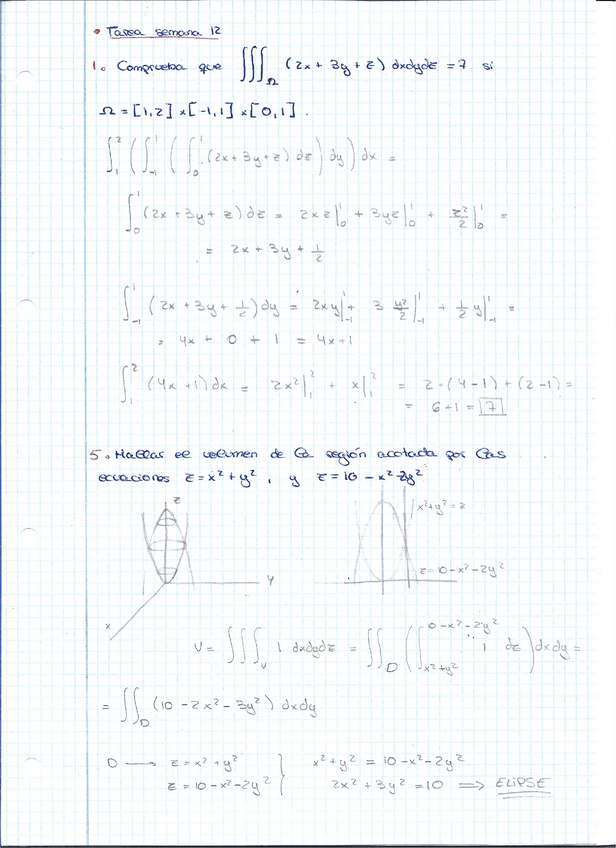 • Tarea semana 12
1. Comprueba que ∭_Ω (2x + 3y + z) dxdydz = 7 si
Ω = [1,2] × [-1,1] × [0,1].
∫_1^2 ( ∫_{-1}^1 ( ∫_0^1 (2x + 3y + z) dz ) dy ) dx =
∫_0^1 (2x + 3y + z) dz = 2xz |_0^1 + 3yz |_0^1 + z²/2 |_0^1 =
= 2x + 3y + 1/2
∫_{-1}^1 (2x + 3y + 1/2) dy = 2xy |_{-1}^1 + 3 y²/2 |_{-1}^1 + 1/2 y |_{-1}^1 =
= 4x + 0 + 1 = 4x+1
∫_1^2 (4x + 1) dx = 2x² |_1^2 + x |_1^2 = 2·(4-1) + (2-1) =
= 6+1 = 7
5. Hallar el volumen de la región acotada por las
ecuaciones z = x² + y², y z = 10 - x² - 2y²
z
y
x
x² + y² = z
z = 10 - x² - 2y²
V = ∭_V 1 dxdydz = ∬_D ( ∫_{x²+y²}^{10-x²-2y²} 1 dz ) dxdy =
= ∬_D (10 - 2x² - 3y²) dxdy
D → z = x² + y² } x² + y² = 10 - x² - 2y²
z = 10 - x² - 2y² } 2x² + 3y² = 10 ⇒ ELIPSE